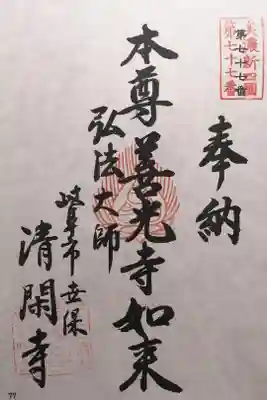 美濃新四國
第七十七番
奉納
本尊善光寺如来
弘法大師
岐阜市世保
清閑寺
77